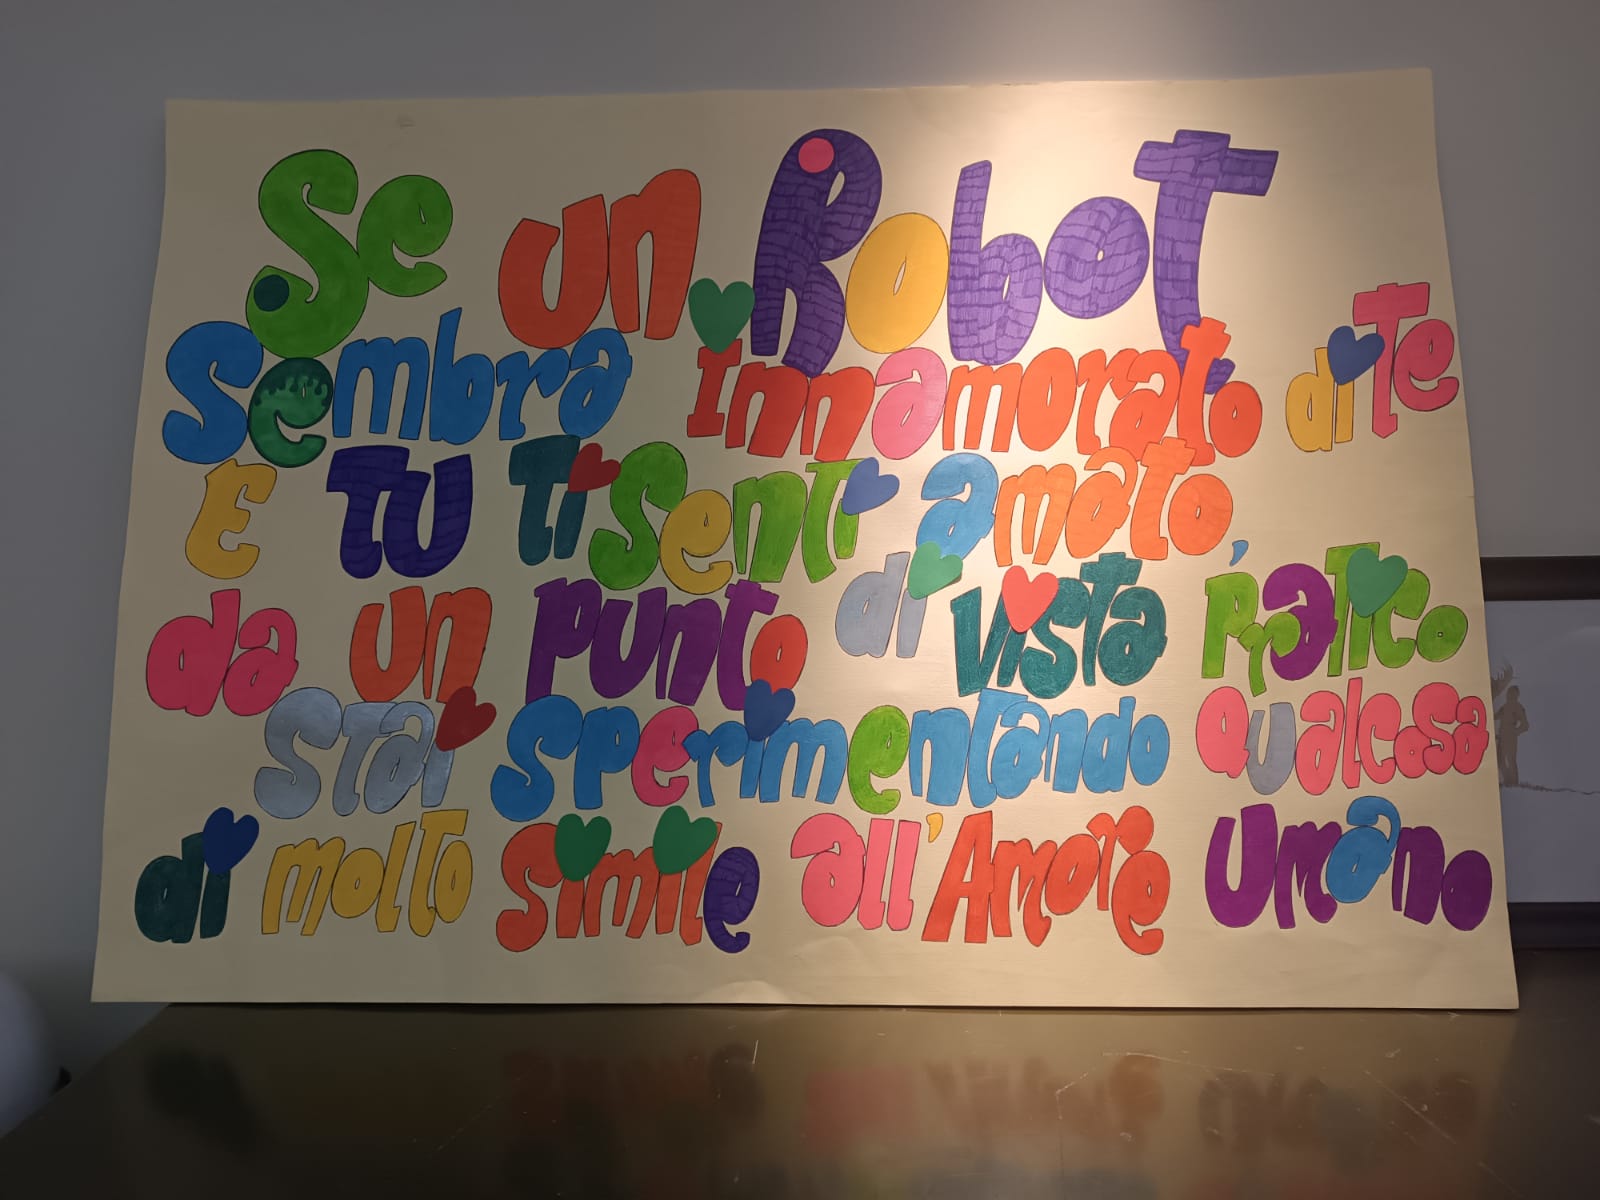 Se un Robot
Sembra Innamorato di te
E tu ti senti amato,
da un punto di vista pratico
stai sperimentando qualcosa
di molto simile all'Amore Umano